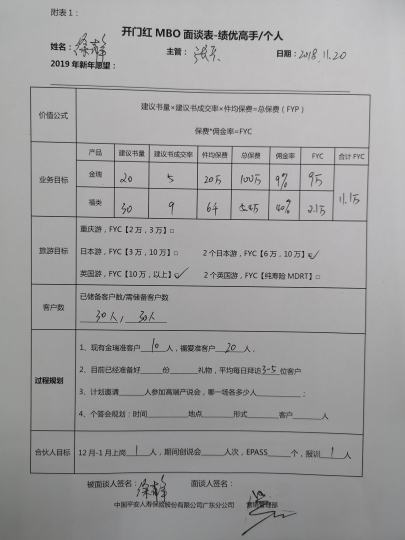 附表1：
开门红 MBO 面谈表-绩优高手/个人
姓名： 徐静 主管： 张 日期： 2018.11.20
2019 年新年愿望：
价值公式 建议书量×建议书成交率×件均保费=总保费（FYP）
保费*佣金率=FYC
产品 建议书量 建议书成交率 件均保费 总保费 佣金率 FYC 合计 FYC
业务目标 金瑞 20 5 20万 100万 9% 9万 11.1万
福类 30 9 6千 5.4万 40% 2.1万
旅游目标 重庆游，FYC【2 万，3 万】□
日本游，FYC【3 万，10 万】□ 2 个日本游，FYC【6 万，10 万】☑
英国游，FYC【10 万，以上】☑ 2 个英国游，FYC【纯寿险 MDRT】□
客户数 已储备客户数/需储备客户数
30人， 30人
过程规划 1、现有金瑞准客户 10 人，福爱准客户 20 人，
2、目前已经准备好 份 礼物，平均每日拜访 3-5 位客户
3、计划邀请 人参加高端产说会，哪一场各多少人 ；
4、个答会规划：时间 地点 形式 客户 人
合伙人目标 12 月-1 月上岗 1 人，期间创说会 人次，EPASS 个，报训 1 人
被面谈人签名： 徐静 面谈人签名：
中国平安人寿保险股份有限公司广东分公司 营销管理部